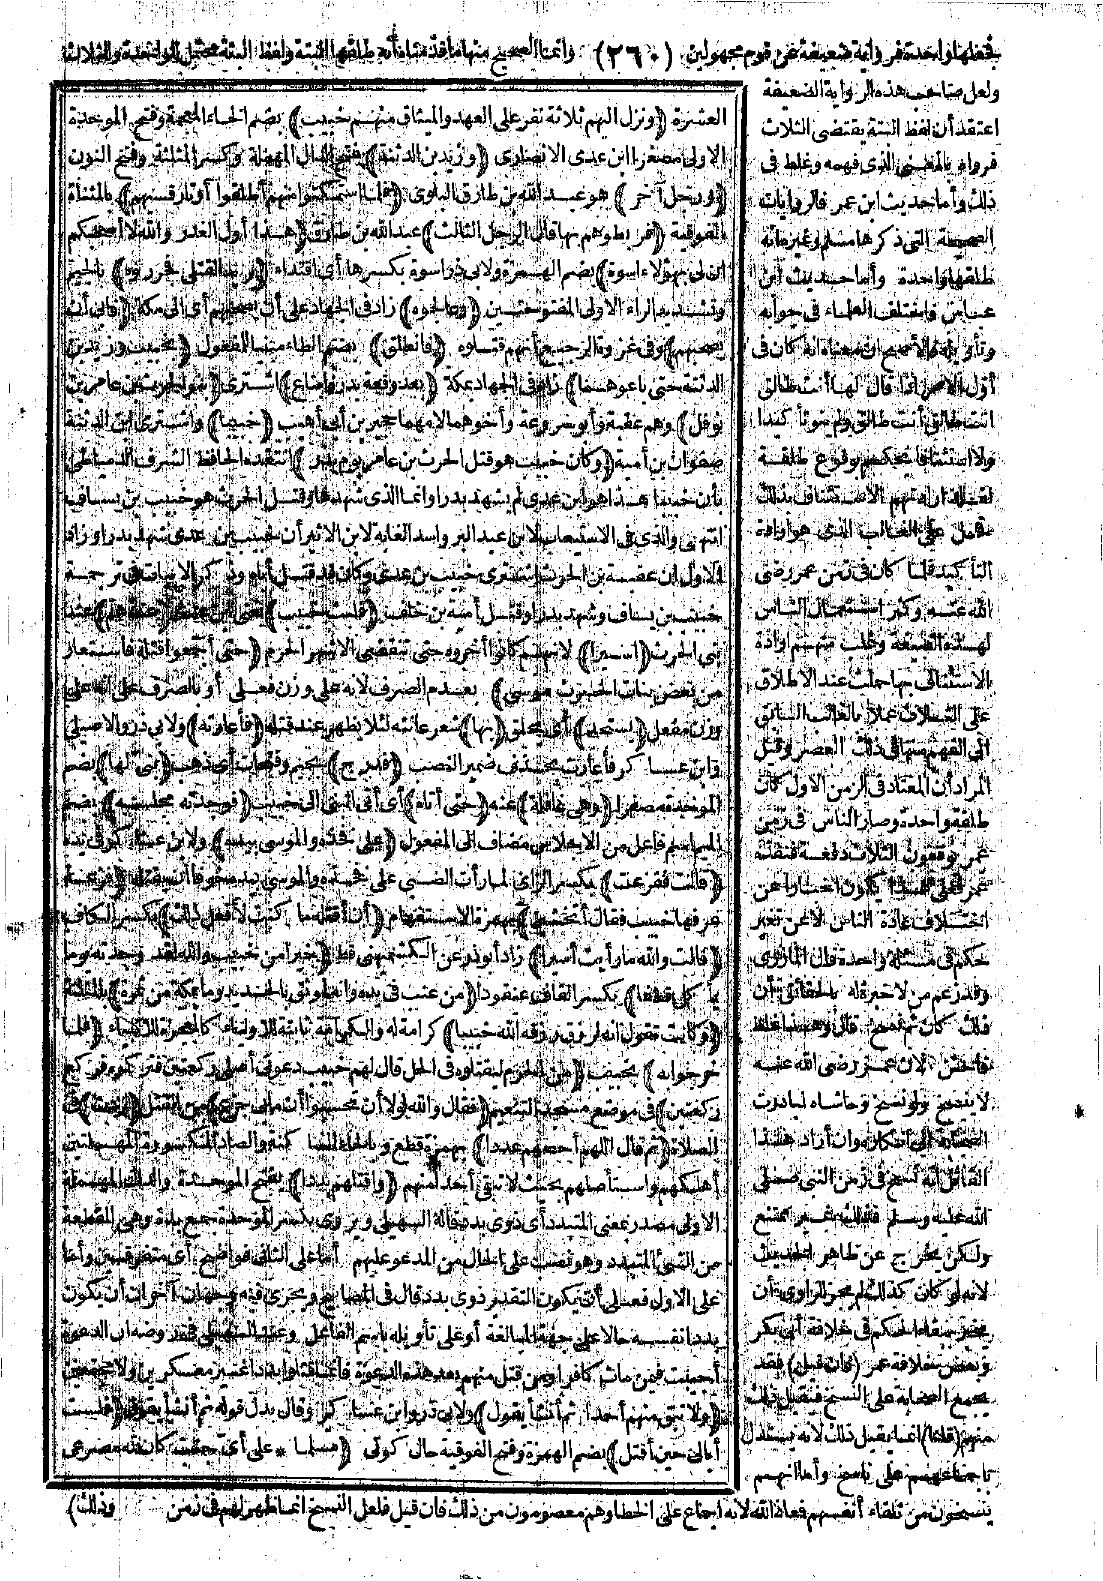 يجعلها واحدة فرواية ضعيفة عن قوم مجهولين (٢٦٠) وانما الصحيح منها ما قدمناه أنه طلقها البتة ولفظ البتة محتمل للواحدة والثلاث
ولعل صاحب هذه الرواية الضعيفة
اعتقد أن لفظ البتة يقتضى الثلاث
فرواه بالمعنى الذى فهمه وغلط فى
ذلك وأما حديث ابن عمر فالروايات
الصحيحة التى ذكرها مسلم وغيره أنه
طلقها واحدة وأما حديث ابن
عباس فاختلف العلماء فى جوابه
وتأويله فالأصح ان معناه انه كان فى
أول الامر اذا قال لها أنت طالق
أنت طالق أنت طالق ولم ينو تأكيدا
ولا استئنافا يحكم بوقوع طلقة
لقلة ارادتهم الاستئناف بذلك
فحمل على الغالب الذى هو ارادة
التأكيد فلما كان فى زمن عمر رضى
الله عنه وكثر استعمال الناس
لهذه الصيغة وغلب منهم ارادة
الاستئناف بها حملت عند الاطلاق
على الثلاث عملا بالغالب السابق
الى الفهم منها فى ذلك العصر وقيل
المراد أن المعتاد فى الزمن الاول كان
طلقة واحدة وصار الناس فى زمن
عمر يوقعون الثلاث دفعة فنفذه
عمر فعلى هذا يكون اخبارا عن
اختلاف عادة الناس لا عن تغير
حكم فى مسئلة واحدة قال المازرى
وقد زعم من لا خبرة له بالحقائق أن
ذلك كان ثم نسخ قال وهذا غلط
فاحش لان عمر رضى الله عنه
لا ينسخ ولو نسخ وحاشاه لبادرت
الصحابة الى انكاره وان أراد هذا
القائل انه نسخ فى زمن النبى صلى
الله عليه وسلم فذلك غير ممتنع
ولكن يخرج عن ظاهر الحديث
لانه لو كان كذلك لم يجز للراوى أن
يخبر ببقاء الحكم فى خلافة أبى بكر
وبعض خلافة عمر (فان قيل) فقد
يجمع الصحابة على النسخ فيقبل ذلك
منهم (قلنا) انما يقبل ذلك لانه يستدل
باجماعهم على ناسخ وأما انهم
ينسخون من تلقاء أنفسهم فمعاذ الله لانه اجماع على الخطا وهم معصومون من ذلك فان قيل فلعل النسخ انما ظهر لهم فى زمن
العشرة (ونزل اليهم ثلاثة نفر على العهد والميثاق منهم خبيب) بضم الخاء المعجمة وفتح الموحدة
الاولى مصغرا ابن عدى الانصارى (وزيد بن الدثنة) بفتح الدال المهملة وكسر المثلثة وفتح النون
(ورجل آخر) هو عبد الله بن طارق البلوى (فلما استمكنوا منهم أطلقوا أوتار قسيهم) بالمثناة
الفوقية (فربطوهم بها قال الرجل الثالث) عبد الله بن طارق (هذا أول الغدر والله لا أصحبكم
ان لى بهؤلاء اسوة) بضم الهمزة ولابى ذر اسوة بكسرها أى اقتداء (يريد القتلى فجرروه) بالجيم
وتشديد الراء الاولى المفتوحتين (وعالجوه) زاد فى الجهاد على أن يصحبهم أى الى مكة (فأبى أن
يصحبهم) وفى غزوة الرجيع أنهم قتلوه (فانطلق) بضم الطاء مبنيا للمفعول (بخبيب وزيد بن
الدثنة حتى باعوهما) زاد فى الجهاد بمكة (بعد وقعة بدر فابتاع) اشترى (بنو الحرث بن عامر بن
نوفل) وهم عقبة وأبو سروعة وأخوهما لامهما حجير بن أبى أهيب (خبيبا) واشترى ابن الدثنة
صفوان بن أمية (وكان خبيب هو قتل الحرث بن عامر يوم بدر) انتقده الحافظ الشرف الدمياطى
بأن خبيبا هذا هو ابن عدى لم يشهد بدرا وانما الذى شهدها وقتل الحرث هو خبيب بن يساف
انتهى والذى فى الاستيعاب لابن عبد البر واسد الغابة لابن الاثير أن خبيب بن عدى شهد بدرا وزاد
الاول ان عقبة بن الحرث اشترى خبيب بن عدى وكان قد قتل أباه وذكر الابيات فى ترجمة
خبيب بن يساف وشهد بدرا وقتل أمية بن خلف (فلبث خبيب) يعنى ابن عدى (عندهم) عند
بنى الحرث (اسيرا) لانهم كانوا أخروه حتى تنقضى الاشهر الحرم (حتى أجمعوا قتله فاستعار
من بعض بنات الحرث موسى) بعدم الصرف لانه على وزن فعلى أو بالصرف على انه على
وزن مفعل (يستحد) أى يحلق (بها) شعر عانته لئلا يظهر عند قتله (فأعارته) ولابى ذر والاصيلى
وابن عساكر فأعارت بحذف ضمير النصب (فدرج) بجيم وفتحات أى ذهب (بنى لها) بضم
الموحدة مصغرا (وهى غافلة) عنه (حتى أتاه) أى أتى البنى الى خبيب (فوجدته مجلسه) بضم
الميم اسم فاعل من الاجلاس مضاف الى المفعول (على فخذه والموسى بيده) ولابن عساكر فى يده
(قالت ففزعت) بكسر الزاى لما رأت الصبى على فخذه والموسى بيده خوفا أن يقتله (فزعة
عرفها خبيب فقال أتخشين) بهمزة الاستفهام (أن أقتله ما كنت لأفعل ذلك) بكسر الكاف
(قالت والله ما رأيت أسيرا) زاد أبو ذر عن الكشميهنى قط (خيرا من خبيب والله لقد وجدته يوما
يأكل قطفا) بكسر القاف عنقودا (من عنب فى يده وانه لموثق بالحديد وما بمكة من ثمرة) بالمثلثة
(وكانت تقول انه لرزق رزقه الله خبيبا) كرامة له والكرامة ثابتة للاولياء كالمعجزة للانبياء (فلما
خرجوا به) بخبيب (من الحرم ليقتلوه فى الحل قال لهم خبيب دعونى أصلى ركعتين فتركوه فركع
ركعتين) فى موضع مسجد التنعيم (فقال والله لولا أن تحسبوا أن ما بى جزع) من القتل (لزدت) فى
الصلاة (ثم قال اللهم أحصهم عددا) بهمزة قطع وبالحاء الساكنة والصاد المكسورة المهملتين
أهلكهم واستأصلهم بحيث لا تبقى أحدا منهم (واقتلهم بددا) بفتح الموحدة والدال المهملة
الاولى مصدر بمعنى المتبدد أى ذوى بدد قاله السهيلى ويروى بكسر الموحدة جمع بدة وهى القطعة
من الشئ المتبدد وهو نصب على الحال من المدعو عليهم أما على الثانى فواضح أى متفرقين وأما
على الاول فعلى أن يكون التقدير ذوى بدد قال فى المصابيح ويجرى فيه وجهان آخران أن يكون
بددا نفسه حالا على جهة المبالغة أو على تأويله باسم الفاعل وعند السهيلى فى روضه ان الدعوة
أجيبت فيمن مات كافرا ومن قتل منهم بعد هذه الدعوة فانما قتلوا بددا غير معسكرين ولا مجتمعين
(ولا تبق منهم أحدا ثم أنشأ يقول) ولابى ذر وابن عساكر وقال بدل قوله ثم أنشأ يقول (فلست
أبالى حين أقتل) بضم الهمزة وفتح الفوقية حال كونى (مسلما * على أى جنب كان لله مصرعى
وذلك)